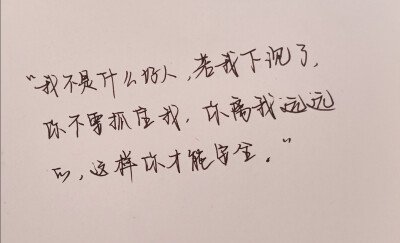 “我不是什么好人，若我下沉了，
你不要抓住我，你离我远远
的，这样你才能安全。”